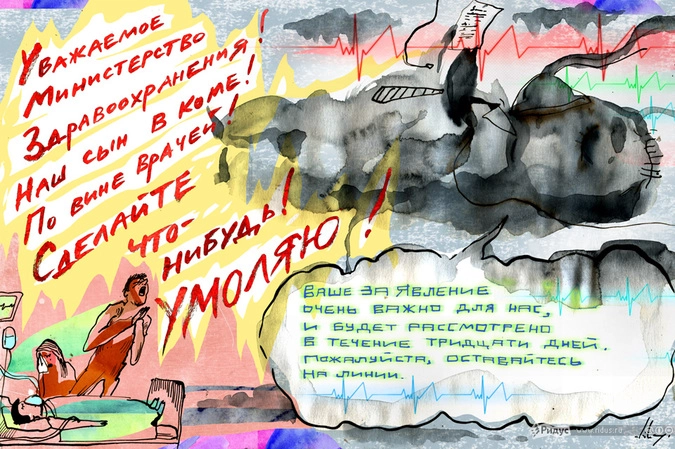 Уважаемое
Министерство
Здравоохранения!
Наш сын в коме!
По вине врачей!
Сделайте
что-
нибудь!
УМОЛЯЮ!
ВАШЕ ЗАЯВЛЕНИЕ
ОЧЕНЬ ВАЖНО ДЛЯ НАС,
И БУДЕТ РАССМОТРЕНО
В ТЕЧЕНИЕ ТРИДЦАТИ ДНЕЙ.
ПОЖАЛУЙСТА, ОСТАВАЙТЕСЬ
НА ЛИНИИ.
Ридус